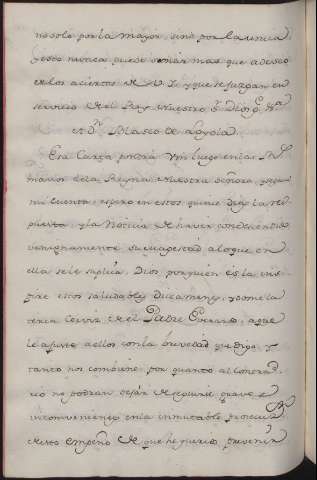 no solo por la mayor, sino por la unica
y esto nunca puede mirar mas que a deseo
de los aciertos de V. I. y que se juzgan en
servicio del Rey Nuestro S.r Dios g.e V.a
A D.n Blasco de Loyola.
Esa Carta pondra Vm luego en las R.s
manos de la Reyna Nuestra Señora,
mi Cuenta: espero en estos que me dejen la res
puesta, y la Noticia de haver condescendido
venignamente su Magestad a lo que en
ella se le suplica. Dios por quien es la ins
pire estos saludables dictamenes, y dome la
terca Cerviz del Padre Everardo, a que
le ajuste a ellos con la brevedad que digo, y
tanto nos combiene por quanto al contrad
rio no podran dejar de seguirse graves
inconvenientes en la inmutable prosecuz.on
de este empeño de que he querido prevenir